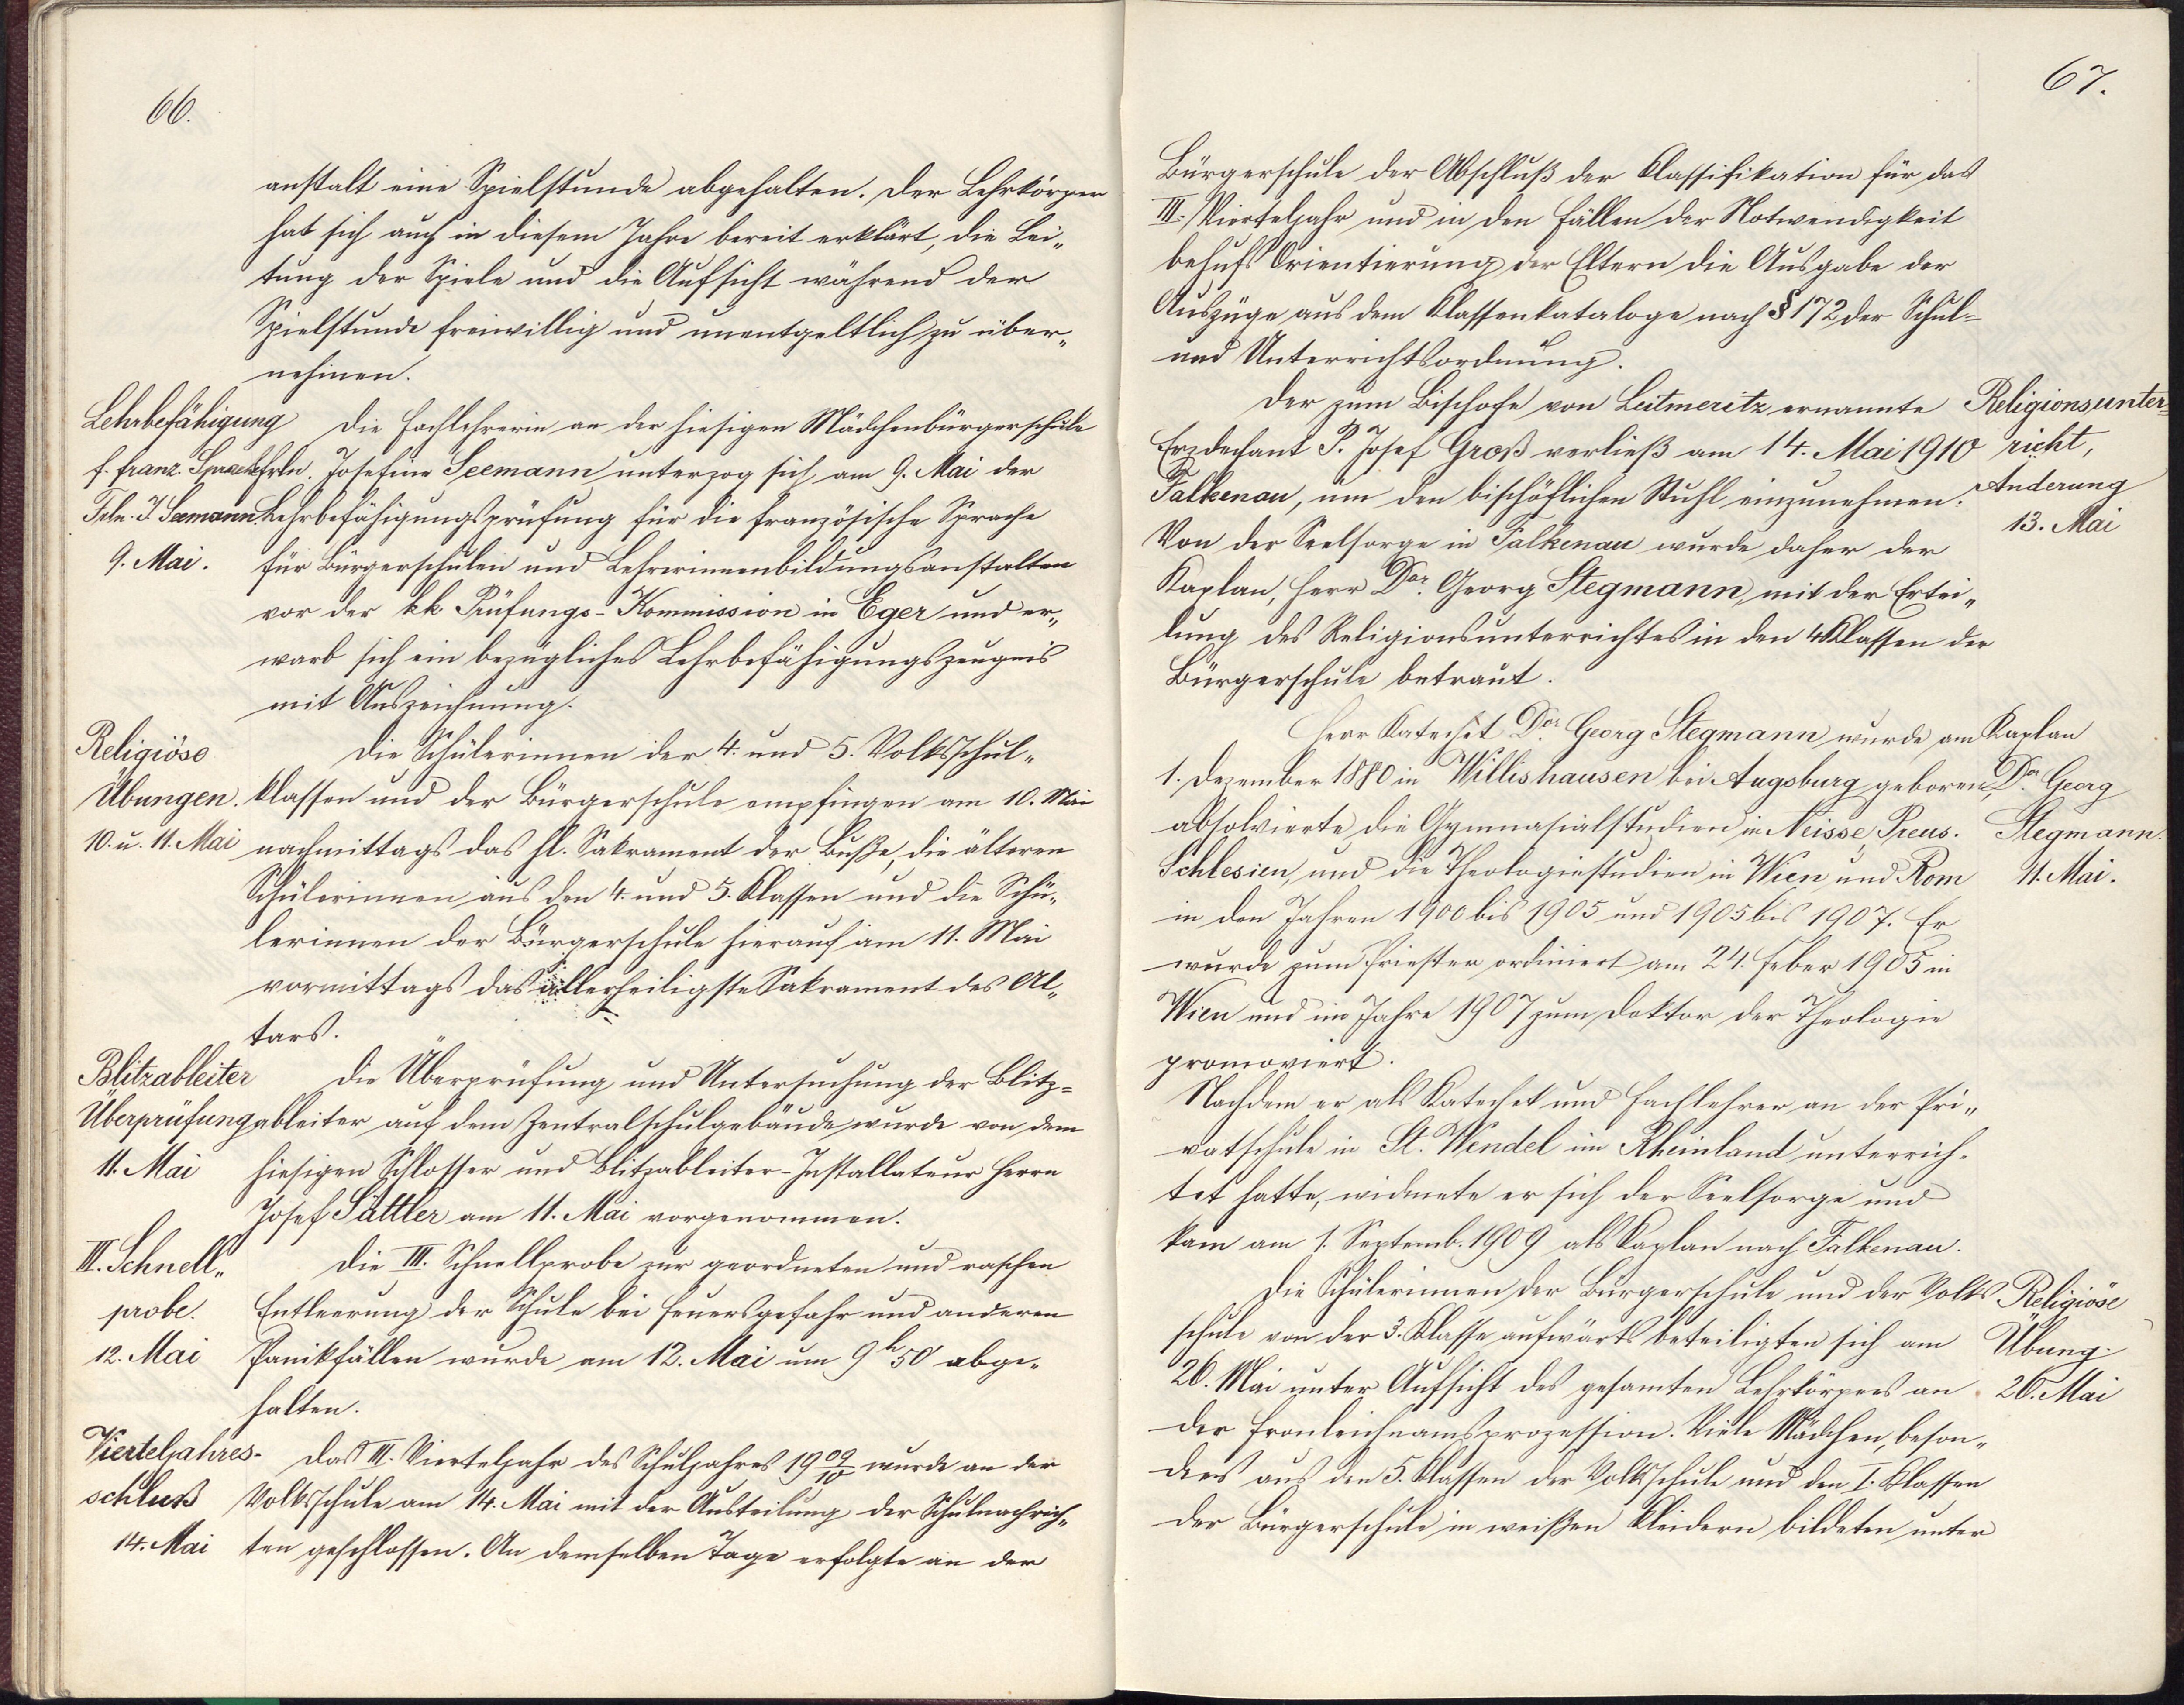 66.
anstalt eine Spielstunde abgehalten. Der Lehrkörper
hat sich auch in diesem Jahre bereit erklärt, die Lei„
tung der Spiele und die Aufsicht während der
Spielstunde freiwillig und unentgeltlich zu über„
nehmen.
Lehrbefähigung
f. franz. Sprache
Frln. J. Seemann
9. Mai.
Die Fachlehrerin an der hiesigen Mädchenbürgerschule
Frln. Josefine Seemann unterzog sich am 9. Mai der
Lehrbefähigungsprüfung für die französische Sprache
für Bürgerschulen und Lehrerinnenbildungsanstalten
vor der kk Prüfungs-Kommission in Eger und er„
warb sich ein bezügliches Lehrbefähigungszeugnis
mit Auszeichnung.
Religiöse
Übungen.
10. u. 11. Mai
Die Schülerinnen der 4. und 5. Volksschul„
klassen und der Bürgerschule empfingen am 10. Mai
nachmittags das hl. Sakrament der Buße, die älteren
Schülerinnen aus den 4. und 5. Klassen und die Schü„
lerinnen der Bürgerschule hierauf am 11. Mai
vormittags das allerheiligste Sakrament des Al„
tars.
Blitzableiter
Überprüfung
11. Mai
Die Überprüfung und Untersuchung der Blitz=
ableiter auf dem Zentralschulgebäude wurde von dem
hiesigen Schlosser und Blitzableiter-Installateur Herrn
Josef Sattler am 11. Mai vorgenommen.
III. Schnell„
probe.
12. Mai
Die III. Schnellprobe zur geordneten und raschen
Entleerung der Schule bei Feuersgefahr und anderen
Panikfällen wurde am 12. Mai um 9h 50' abge„
halten.
Vierteljahres-
schluß
14. Mai
Das III. Vierteljahr des Schuljahres 1909/10 wurde an der
Volksschule am 14. Mai mit der Austeilung der Schulnachrich„
ten geschlossen. An demselben Tage erfolgte an der
67.
Bürgerschule der Abschluß der Klassifikation für das
III. Vierteljahr und in den Fällen der Notwendigkeit
behufs Orientierung der Eltern die Ausgabe der
Auszüge aus dem Klassenkataloge nach § 172 der Schul=
und Unterrichtsordnung.
Der zum Bischofe von Leitmeritz ernannte
Erzdechant P. Josef Groß verließ am 14. Mai 1910
Falkenau, um den bischöflichen Stuhl einzunehmen.
Von der Seelsorge in Falkenau wurde daher der
Kaplan, Herr Dor. Georg Stegmann, mit der Ertei„
lung des Religionsunterrichtes in den 4 Klassen der
Bürgerschule betraut.
Religionsunter=
richt,
Änderung
13. Mai
Herr Katechet Dor. Georg Stegmann wurde am
1. Dezember 1880 in Willishausen bei Augsburg geboren,
absolvierte die Gymnasialstudien in Neisse, Preus.
Schlesien, und die Theologiestudien in Wien und Rom
in den Jahren 1900 bis 1905 und 1905 bis 1907. Er
wurde zum Priester ordiniert am 24. Feber 1905 in
Wien und im Jahre 1907 zum Doktor der Theologie
promoviert.
Kaplan
Dor. Georg
Stegmann.
11. Mai.
Nachdem er als Katechet und Fachlehrer an der Pri„
vatschule in St. Wendel im Rheinland unterrich„
tet hatte, widmete er sich der Seelsorge und
kam am 1. Septemb. 1909 als Kaplan nach Falkenau.
Die Schülerinnen der Bürgerschule und der Volks
schule von der 3. Klasse aufwärts beteiligten sich am
26. Mai unter Aufsicht des gesamten Lehrkörpers an
der Fronleichnamsprozession. Viele Mädchen, beson„
ders aus den 5. Klassen der Volksschule und den I. Klassen
der Bürgerschule in weißen Kleidern bildeten unter
Religiöse
Übung.
26. Mai